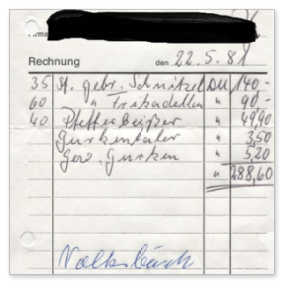 Rechnung den 22.5.81
35 St. gebr. Schnitzel DM 140,-
60 " Frikadellen " 90,-
40 Pfefferbeißer " 49,90
Gurkentaler " 3,50
Gew. Gurken " 5,20
288,60